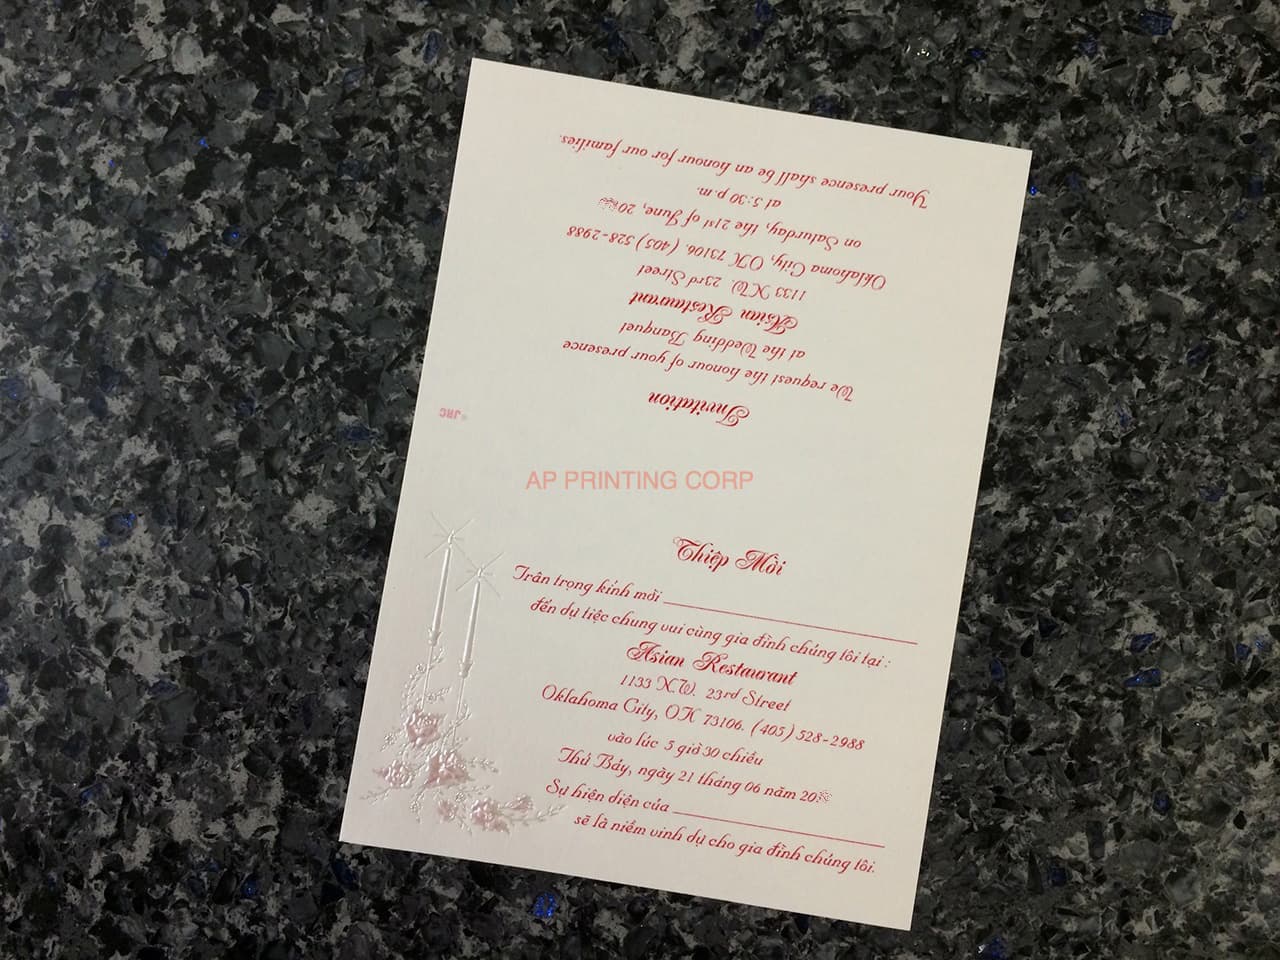 Your presence shall be an honour for our families.
at 5:30 p.m.
on Saturday, the 21st of June, 20
Oklahoma City, OK 73106. (405) 528-2988
1133 N.W. 23rd Street
Asian Restaurant
at the Wedding Banquet
We request the honour of your presence
Invitation
®JRC
AP PRINTING CORP
Thiệp Mời
Trân trọng kính mời
đến dự tiệc chung vui cùng gia đình chúng tôi tại :
Asian Restaurant
1133 N.W. 23rd Street
Oklahoma City, OK 73106. (405) 528-2988
vào lúc 5 giờ 30 chiều
Thứ Bảy, ngày 21 tháng 06 năm 20
Sự hiện diện của
sẽ là niềm vinh dự cho gia đình chúng tôi.